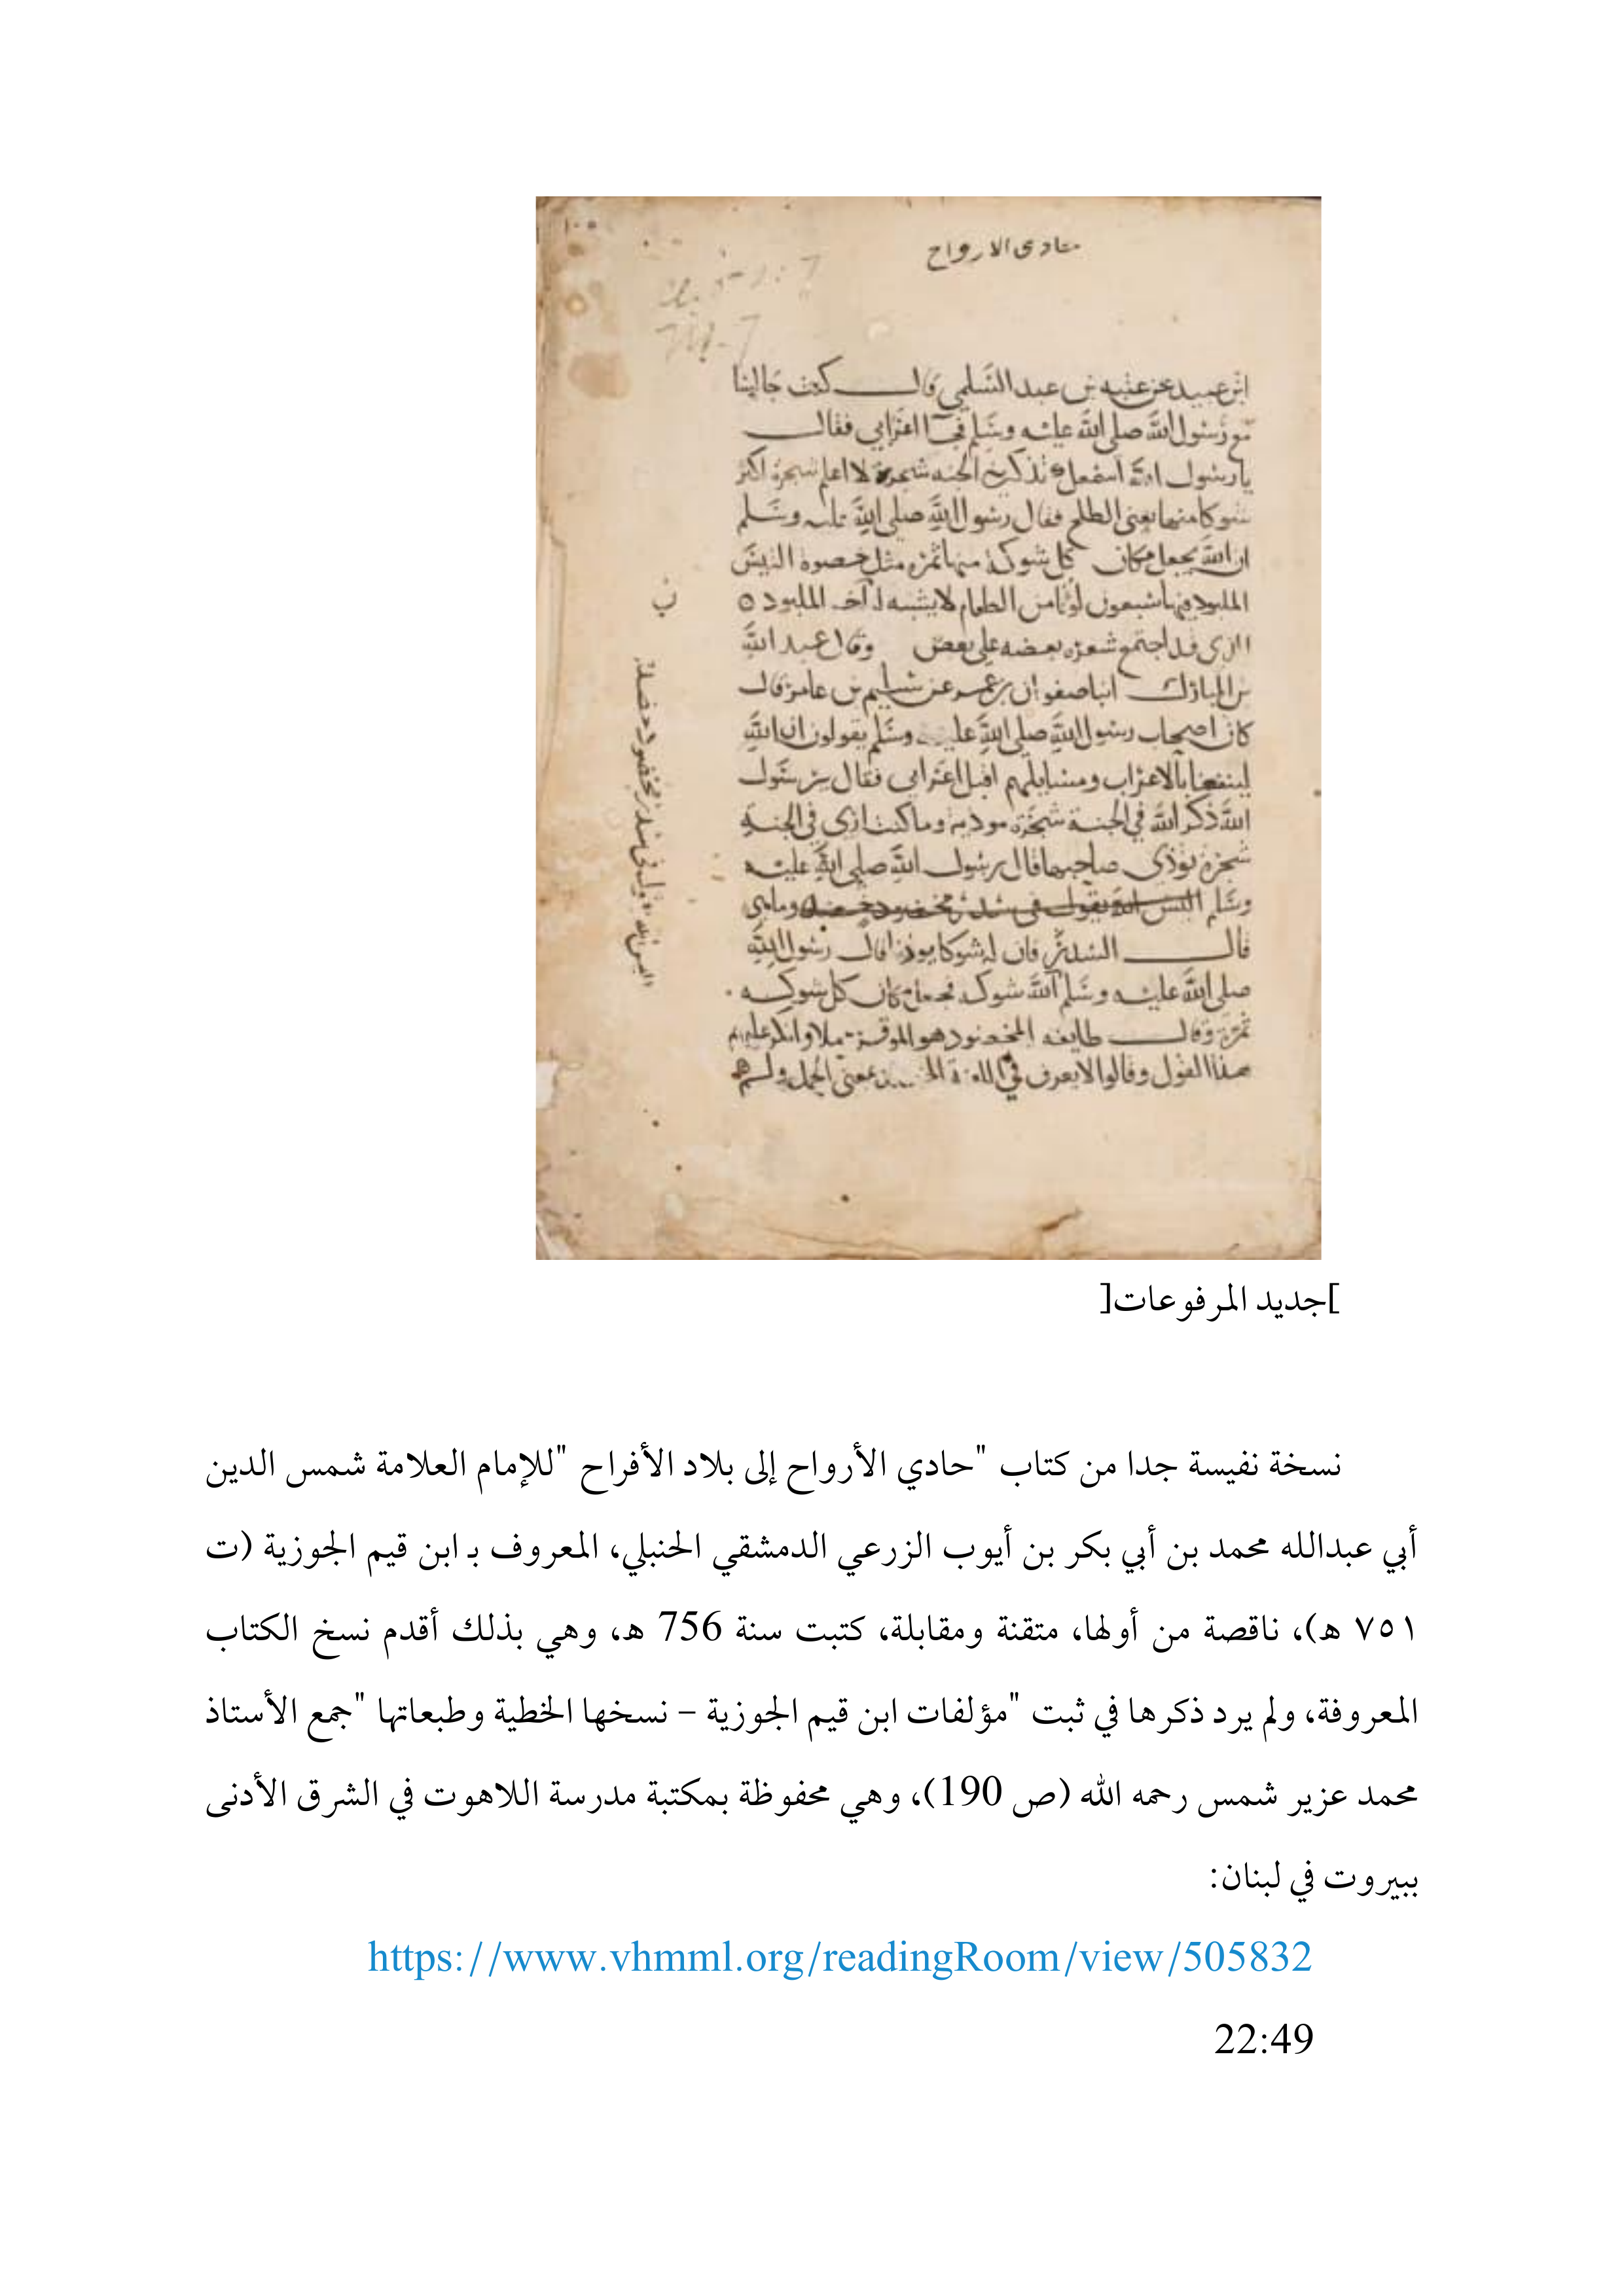 حادى الارواح
ابن عبيد عن عتبه بن عبد السلمي قال كنت جالسا
مع رسول الله صلى الله عليه وسلم اعرابي فقال
يا رسول الله تذكر الجنه شجرة لا اعلم شجرة اكثر
شوكا منها يعني الطلح فقال رسول الله صلى الله عليه وسلم
ان الله يجعل مكان كل شوكة منها ثمرة مثل خصوة التيس
الملبود فيها سبعون لونا من الطعام لا يشبه آخر الملبود ه
الذي قد اجتمع شعره بعضه على بعض وقال عبد الله
بن المبارك انبا صفوان بن عمرو عن سليم بن عامر قال
كان اصحاب رسول الله صلى الله عليه وسلم يقولون ان الله
لينفعنا بالاعراب ومسايلهم اقبل اعرابي فقال يرسول
الله ذكر الله في الجنة شجرة موذية وما كنت ارى في الجنه
شجرة توذي صاحبها قال رسول الله صلى الله عليه
وسلم اليس الله يقول في سدر مخضود وماهي
قال السدر فان له شوكا موذيا قال رسول الله
صلى الله عليه وسلم الله شوكه فجعل مكان كل شوكه
ثمرة وقالت طايفه المخضود هو الموقر حملا وانكر عليهم
هذا القول وقالوا لا يعرف في اللغة بمعنى الحمل ولم
اليس الله يقول في سدر مخضود
[جديد المرفوعات]
نسخة نفيسة جدا من كتاب "حادي الأرواح إلى بلاد الأفراح "للإمام العلامة شمس الدين
أبي عبدالله محمد بن أبي بكر بن أيوب الزرعي الدمشقي الحنبلي، المعروف بـ ابن قيم الجوزية (ت
٧٥١ هـ)، ناقصة من أولها، متقنة ومقابلة، كتبت سنة 756 هـ، وهي بذلك أقدم نسخ الكتاب
المعروفة، ولم يرد ذكرها في ثبت "مؤلفات ابن قيم الجوزية – نسخها الخطية وطبعاتها "جمع الأستاذ
محمد عزير شمس رحمه الله (ص 190)، وهي محفوظة بمكتبة مدرسة اللاهوت في الشرق الأدنى
ببيروت في لبنان:
https://www.vhmml.org/readingRoom/view/505832
22:49